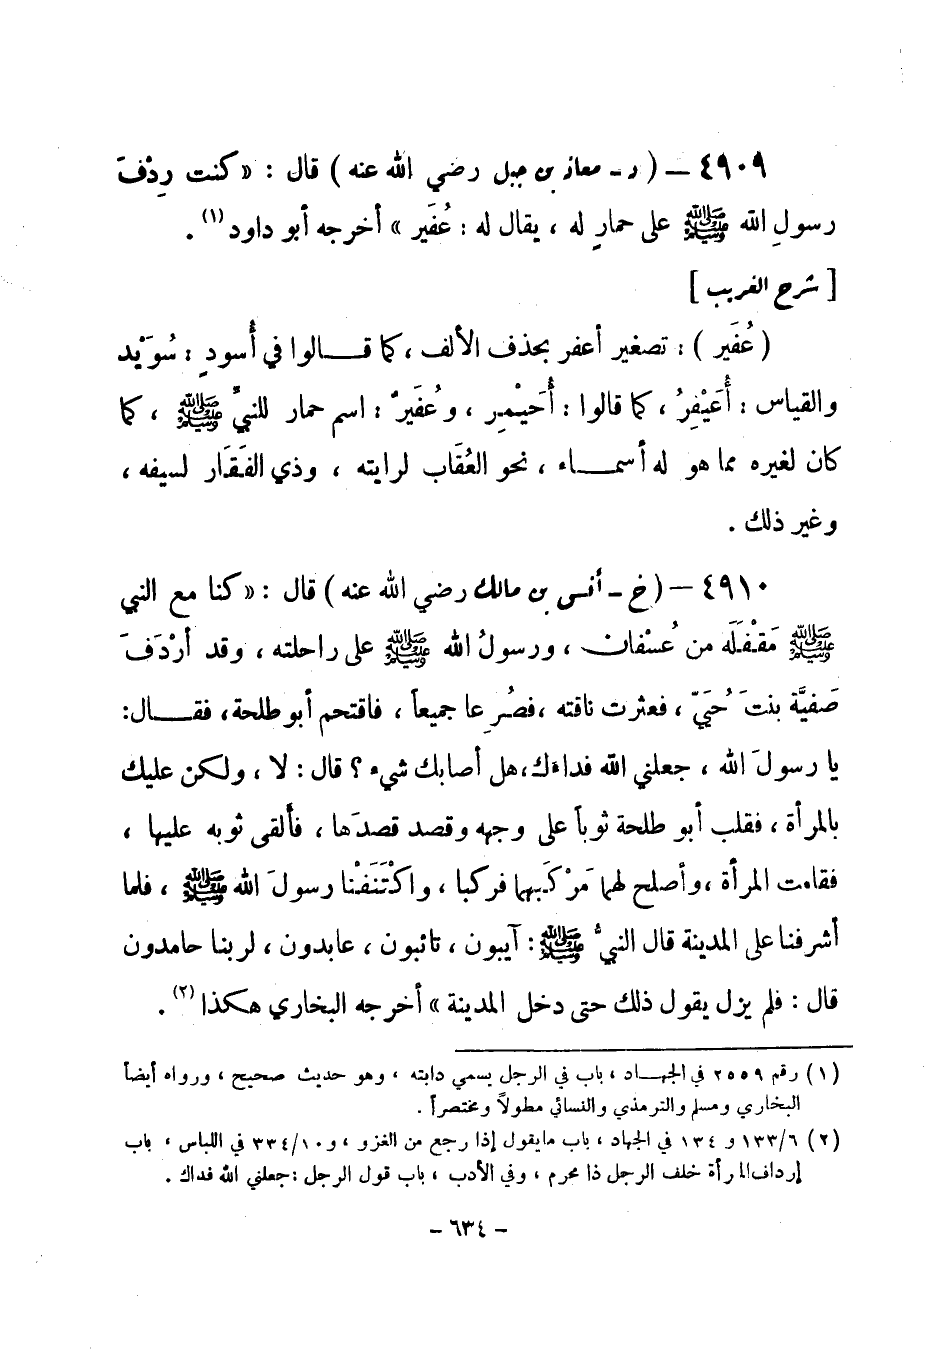 ٤٩٠٩ – ( د - معاذ بن جبل رضي الله عنه ) قال : « كنت رِدْفَ
رسولِ الله ﷺ على حمارٍ له ، يقال له : عُفَير » أخرجه أبو داود (١) .
[ شرح الغريب ]
( عُفَير ) : تصغير أعفر بحذف الألف ، كما قـالوا في أسودٍ : سُوَيْد
والقياس : أُعَيْفِرُ ، كما قالوا : أُحَيْمِر ، وعُفَيرٌ : اسم حمار للنبيِّ ﷺ ، كما
كان لغيره مما هو له أسمـاء ، نحو العُقَاب لرايته ، وذي الفَقَار لسيفه ،
وغير ذلك .
٤٩١٠ – ( خ - أنس بن مالك رضي الله عنه ) قال : « كنا مع النبي
ﷺ مَقْفَلَه من عُسْفان ، ورسولُ الله ﷺ على راحلته ، وقد أرْدَفَ
صَفيَّة بنتَ حُيَيّ ، فعثرت ناقته ، فصُرِعا جميعاً ، فاقتحم أبو طلحة ، فقـال :
يا رسولَ الله ، جعلني الله فداءك ، هل أصابك شيء ؟ قال : لا ، ولكن عليك
بالمرأة ، فقلب أبو طلحة ثوباً على وجهه وقصد قصدَها ، فألقى ثوبه عليها ،
فقامت المرأة ، وأصلح لهما مَرْكَبهما فركبا ، واكْتَنَفْنا رسولَ الله ﷺ ، فلما
أشرفنا على المدينة قال النبيُّ ﷺ : آيبون ، تائبون ، عابدون ، لربنا حامدون
قال : فلم يزل يقول ذلك حتى دخل المدينة » أخرجه البخاري هكذا (٢) .
(١) رقم ٢٥٥٩ في الجهـاد ، باب في الرجل يسمي دابته ، وهو حديث صحيح ، ورواه أيضاً
البخاري ومسلم والترمذي والنسائي مطولاً ومختصراً .
(٢) ١٣٣/٦ و ١٣٤ في الجهاد ، باب مايقول إذا رجع من الغزو ، و ٣٣٤/١٠ في اللباس ، باب
إرداف المرأة خلف الرجل ذا محرم ، وفي الأدب ، باب قول الرجل : جعلني الله فداك .
– ٦٣٤ –